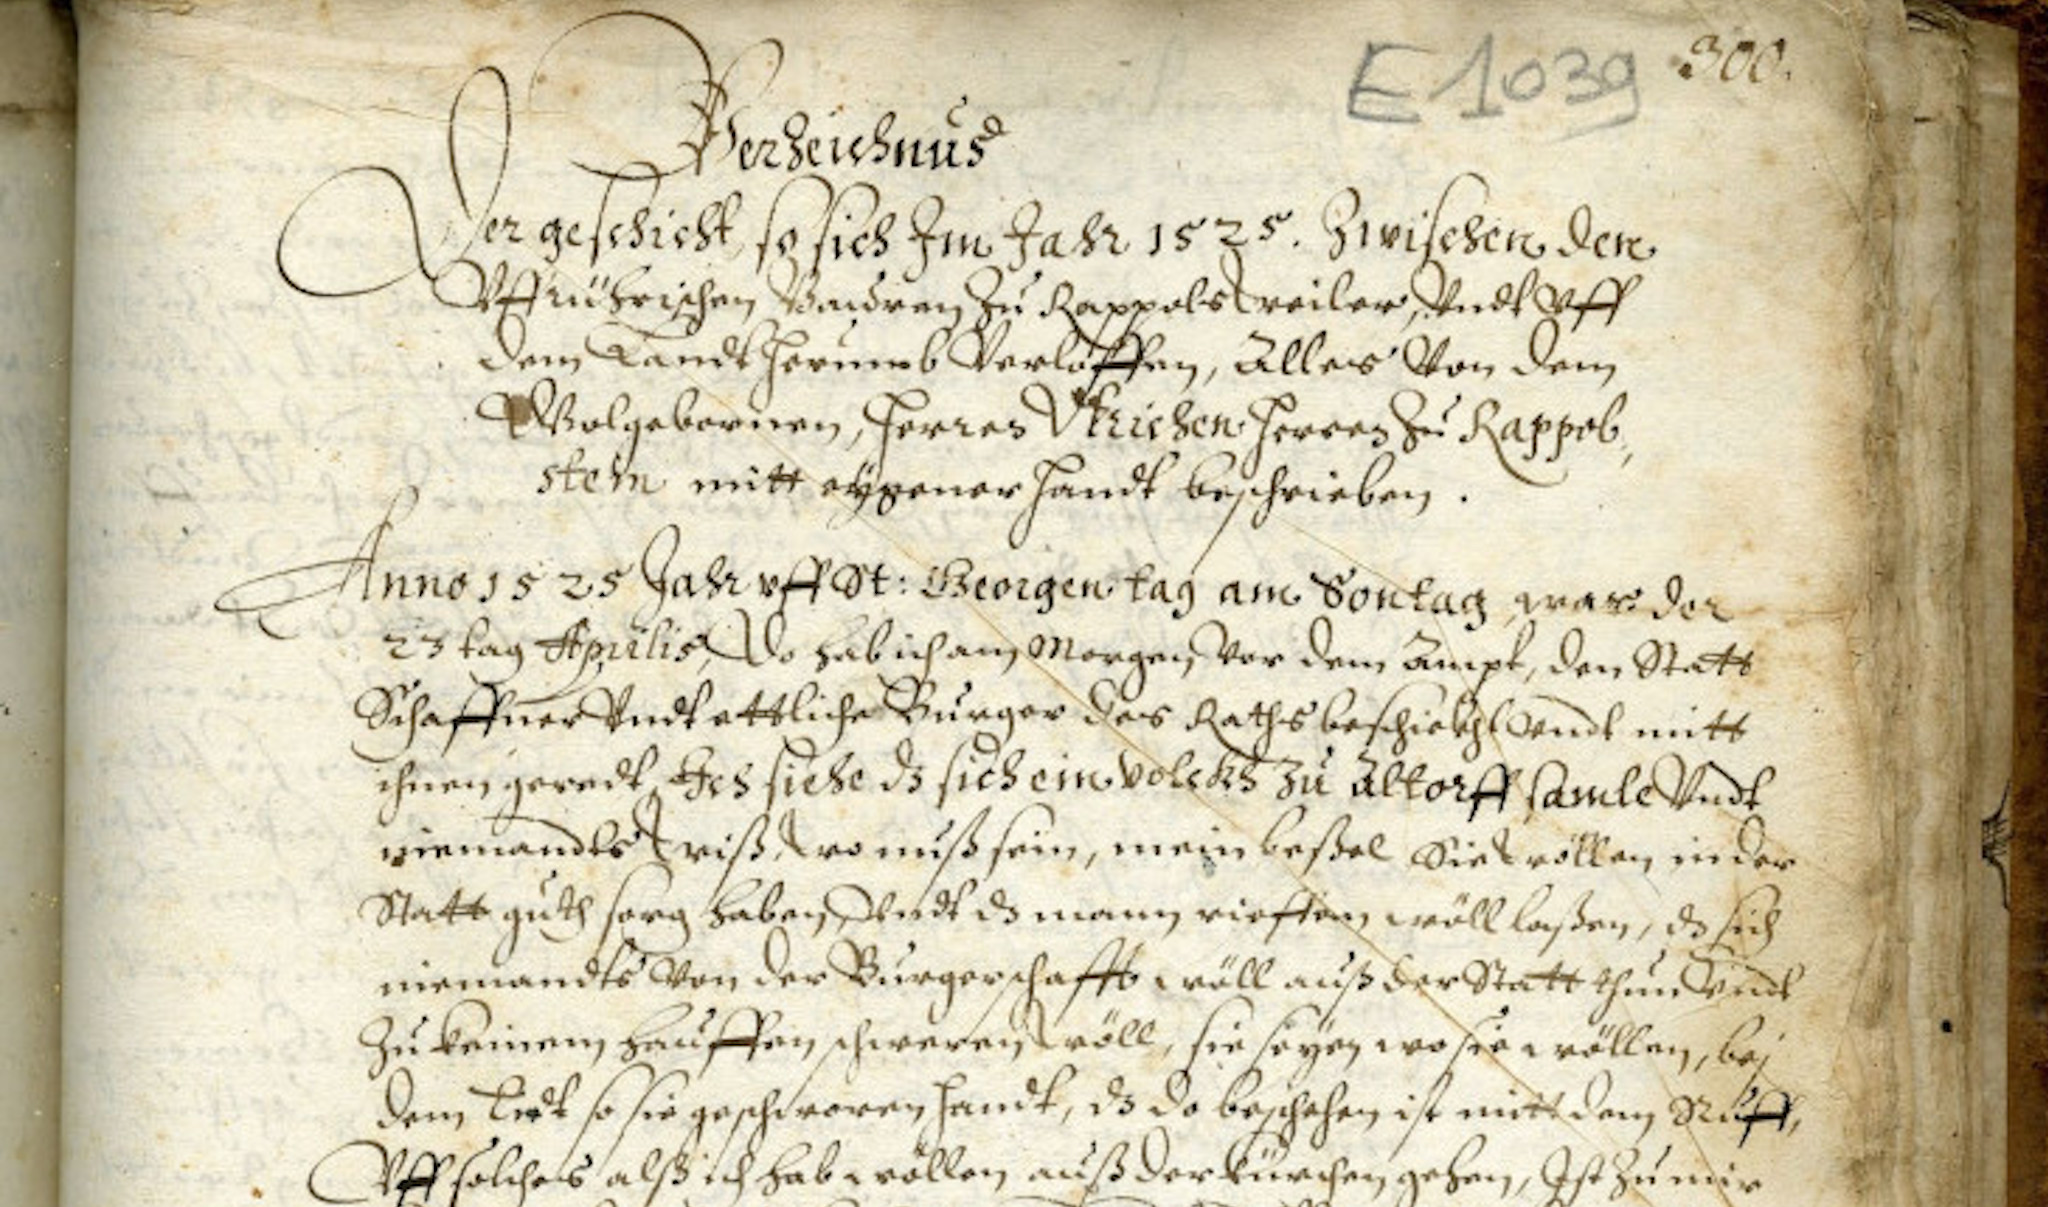 E 1039 300.
Verzeichnus
Der geschicht, so sich Im Jahr 1525. Zwischen den
Vffrührischen Bauren zu Rappoltsweiler, Vndt Vff
dem Landt herumb Verloffen, Alles Von dem
Wolgebornen, Herren Vlrichen Herren zu Rappol,,
stein mitt eygener handt beschrieben.
Anno 1525 Jahr vff St: Georgen tag am Sontag, war der
23 tag Aprilis, Do hab ich am Morgen Vor dem Ampt, den Statt
Schaffner Vndt ettliche Burger des Raths beschickht Vndt mitt
ihnen geredt, Ich siehe dz sich ein volckh zu Altorff samle Vndt
niemandts wiß, wo nuß sein, mein beßel Sie wöllen in der
Statt guth sorg haben, Vndt dz mann rieffen wöll laßen, dz sich
niemandts Von der Burgerschafft wöll auß der Statt thun Vndt
Zu keinem hauffen schweren wöll, sie seyen wo sie wöllen, bej
dem Eidt so sie geschworen handt, dz do beschehen ist mitt dem Ruff,
Vff solches alß ich hab wöllen auß der kürchen gehen, Ist zu mir